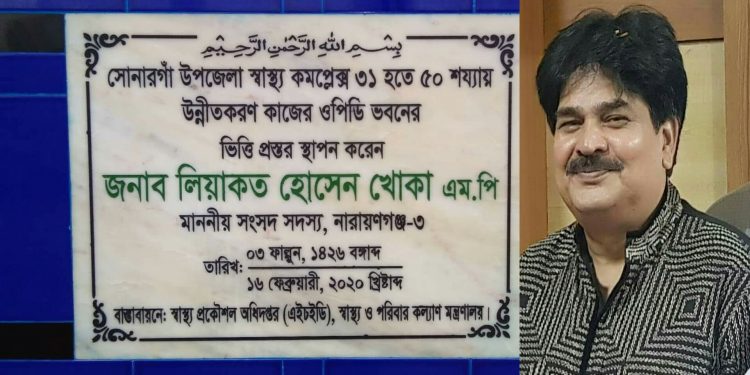 بِسْمِ اللهِ الرَّحْمٰنِ الرَّحِيْمِ
সোনারগাঁ উপজেলা স্বাস্থ্য কমপ্লেক্স ৩১ হতে ৫০ শয্যায়
উন্নীতকরণ কাজের ওপিডি ভবনের
ভিত্তি প্রস্তর স্থাপন করেন
জনাব লিয়াকত হোসেন খোকা এম.পি
মাননীয় সংসদ সদস্য, নারায়ণগঞ্জ-৩
০৩ ফাল্গুন, ১৪২৬ বঙ্গাব্দ
তারিখ:
১৬ ফেব্রুয়ারী, ২০২০ খ্রিষ্টাব্দ
বাস্তাবায়নে: স্বাস্থ্য প্রকৌশল অধিদপ্তর (এইচইডি), স্বাস্থ্য ও পরিবার কল্যাণ মন্ত্রণালয়।